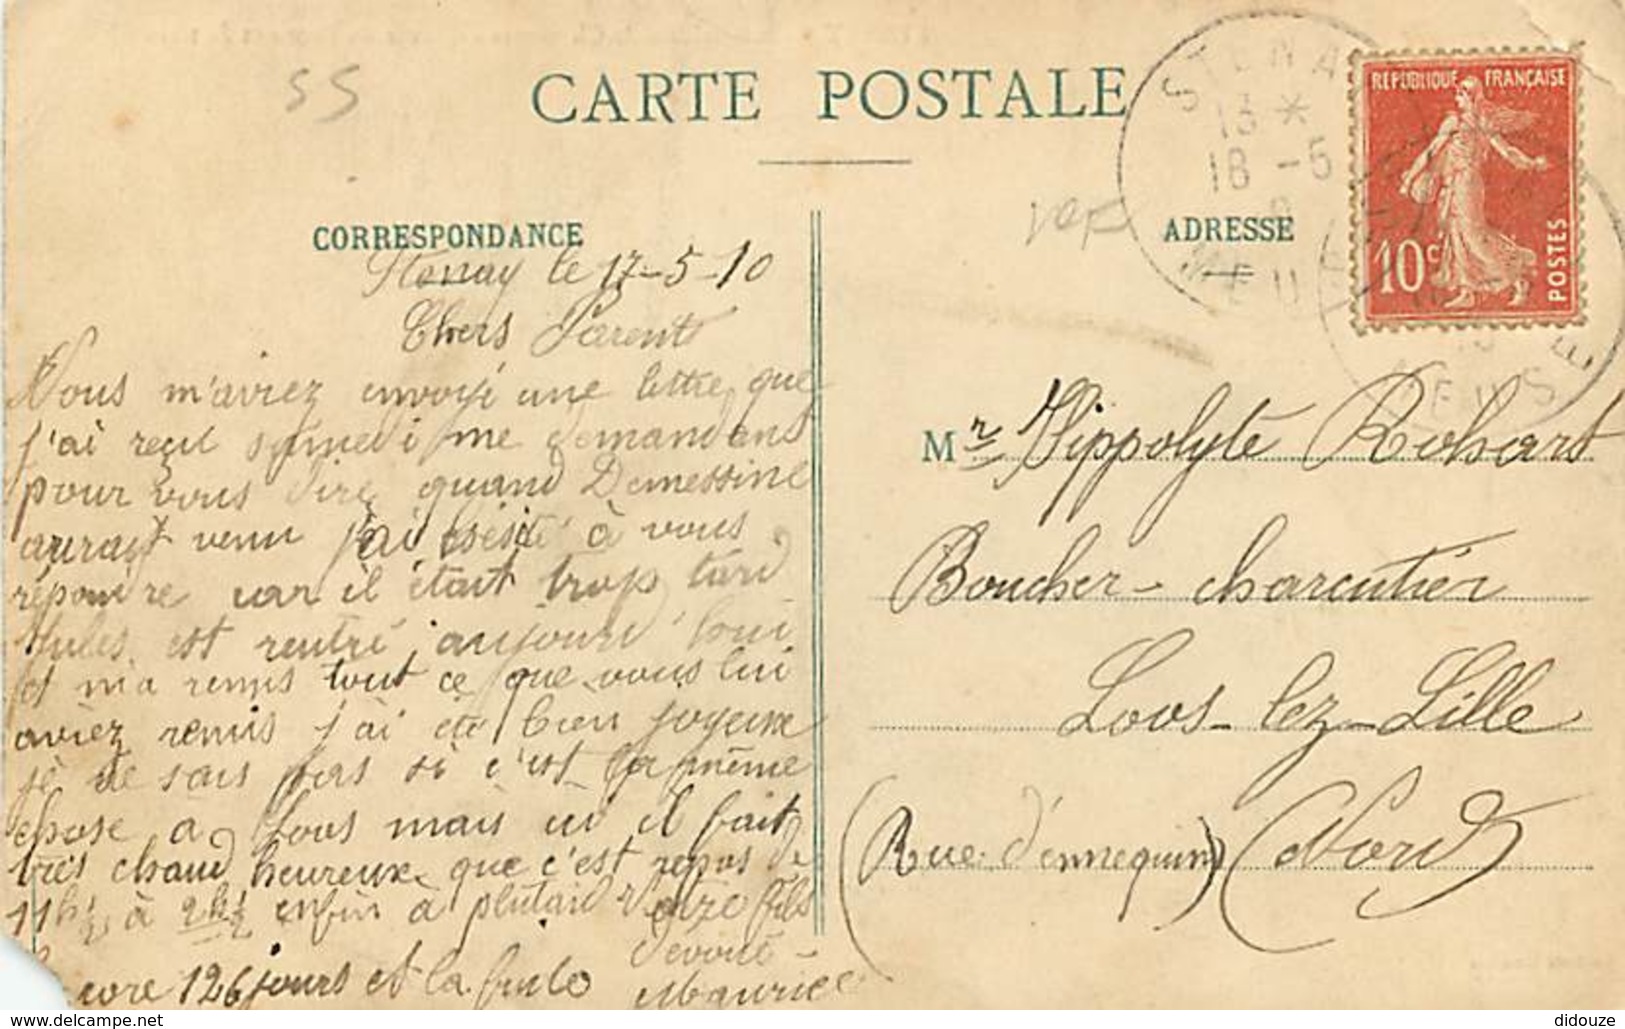 55
CARTE POSTALE
STENAY
13 *
18 -5
MEUSE
REPUBLIQUE FRANÇAISE
10c
POSTES
CORRESPONDANCE
ADRESSE
Stenay le 17-5-10
Chers Parents
Vous m'aviez envoyé une lettre que
j'ai reçu samedi me demandant
pour vous dire quand Demessine
aurait venu j'ai hésité à vous
répondre car il était trop tard
Jules est rentré aujourd'hui
et m'a remis tout ce que vous lui
aviez remis j'ai été bien joyeux
je ne sais pas si c'est la même
chose a Loos mais ici il fait
très chaud heureux que c'est repos de
11h½ à 2h½ enfin a plutard Votre fils
dévoué
126 jours et la fuite Maurice
Mr Hippolyte Rohart
Boucher-charcutier
Loos-lez-Lille
(Rue d'ennequin) (Nord)
didouze